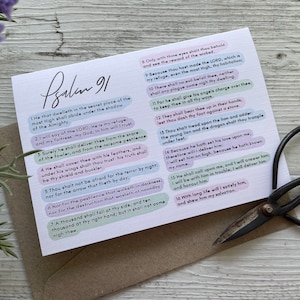 Psalm 91
1 He that dwelleth in the secret place of the
most High shall abide under the shadow of
the Almighty.
2 I will say of the LORD, He is my refuge
and my fortress: my God; in him will I trust.
3 Surely he shall deliver thee from the snare
of the fowler, and from the noisome pestilence.
4 He shall cover thee with his feathers, and
under his wings shalt thou trust: his truth shall
be thy shield and buckler.
5 Thou shalt not be afraid for the terror by night;
nor for the arrow that flieth by day;
6 Nor for the pestilence that walketh in darkness;
nor for the destruction that wasteth at noonday.
7 A thousand shall fall at thy side, and ten
thousand at thy right hand; but it shall not come
nigh thee.
8 Only with thine eyes shalt thou behold
and see the reward of the wicked.
9 Because thou hast made the LORD, which is
my refuge, even the most High, thy habitation;
10 There shall no evil befall thee, neither
shall any plague come nigh thy dwelling.
11 For he shall give his angels charge over thee,
to keep thee in all thy ways.
12 They shall bear thee up in their hands,
lest thou dash thy foot against a stone.
13 Thou shalt tread upon the lion and adder:
under feet.
14 Because he hath set his love upon me,
therefore will I deliver him:
I will set him on high, because he hath known
my name.
15 He shall call upon me, and I will answer him:
I will be with him in trouble; I will deliver him,
and honour him.
16 With long life will I satisfy him,
and shew him my salvation.